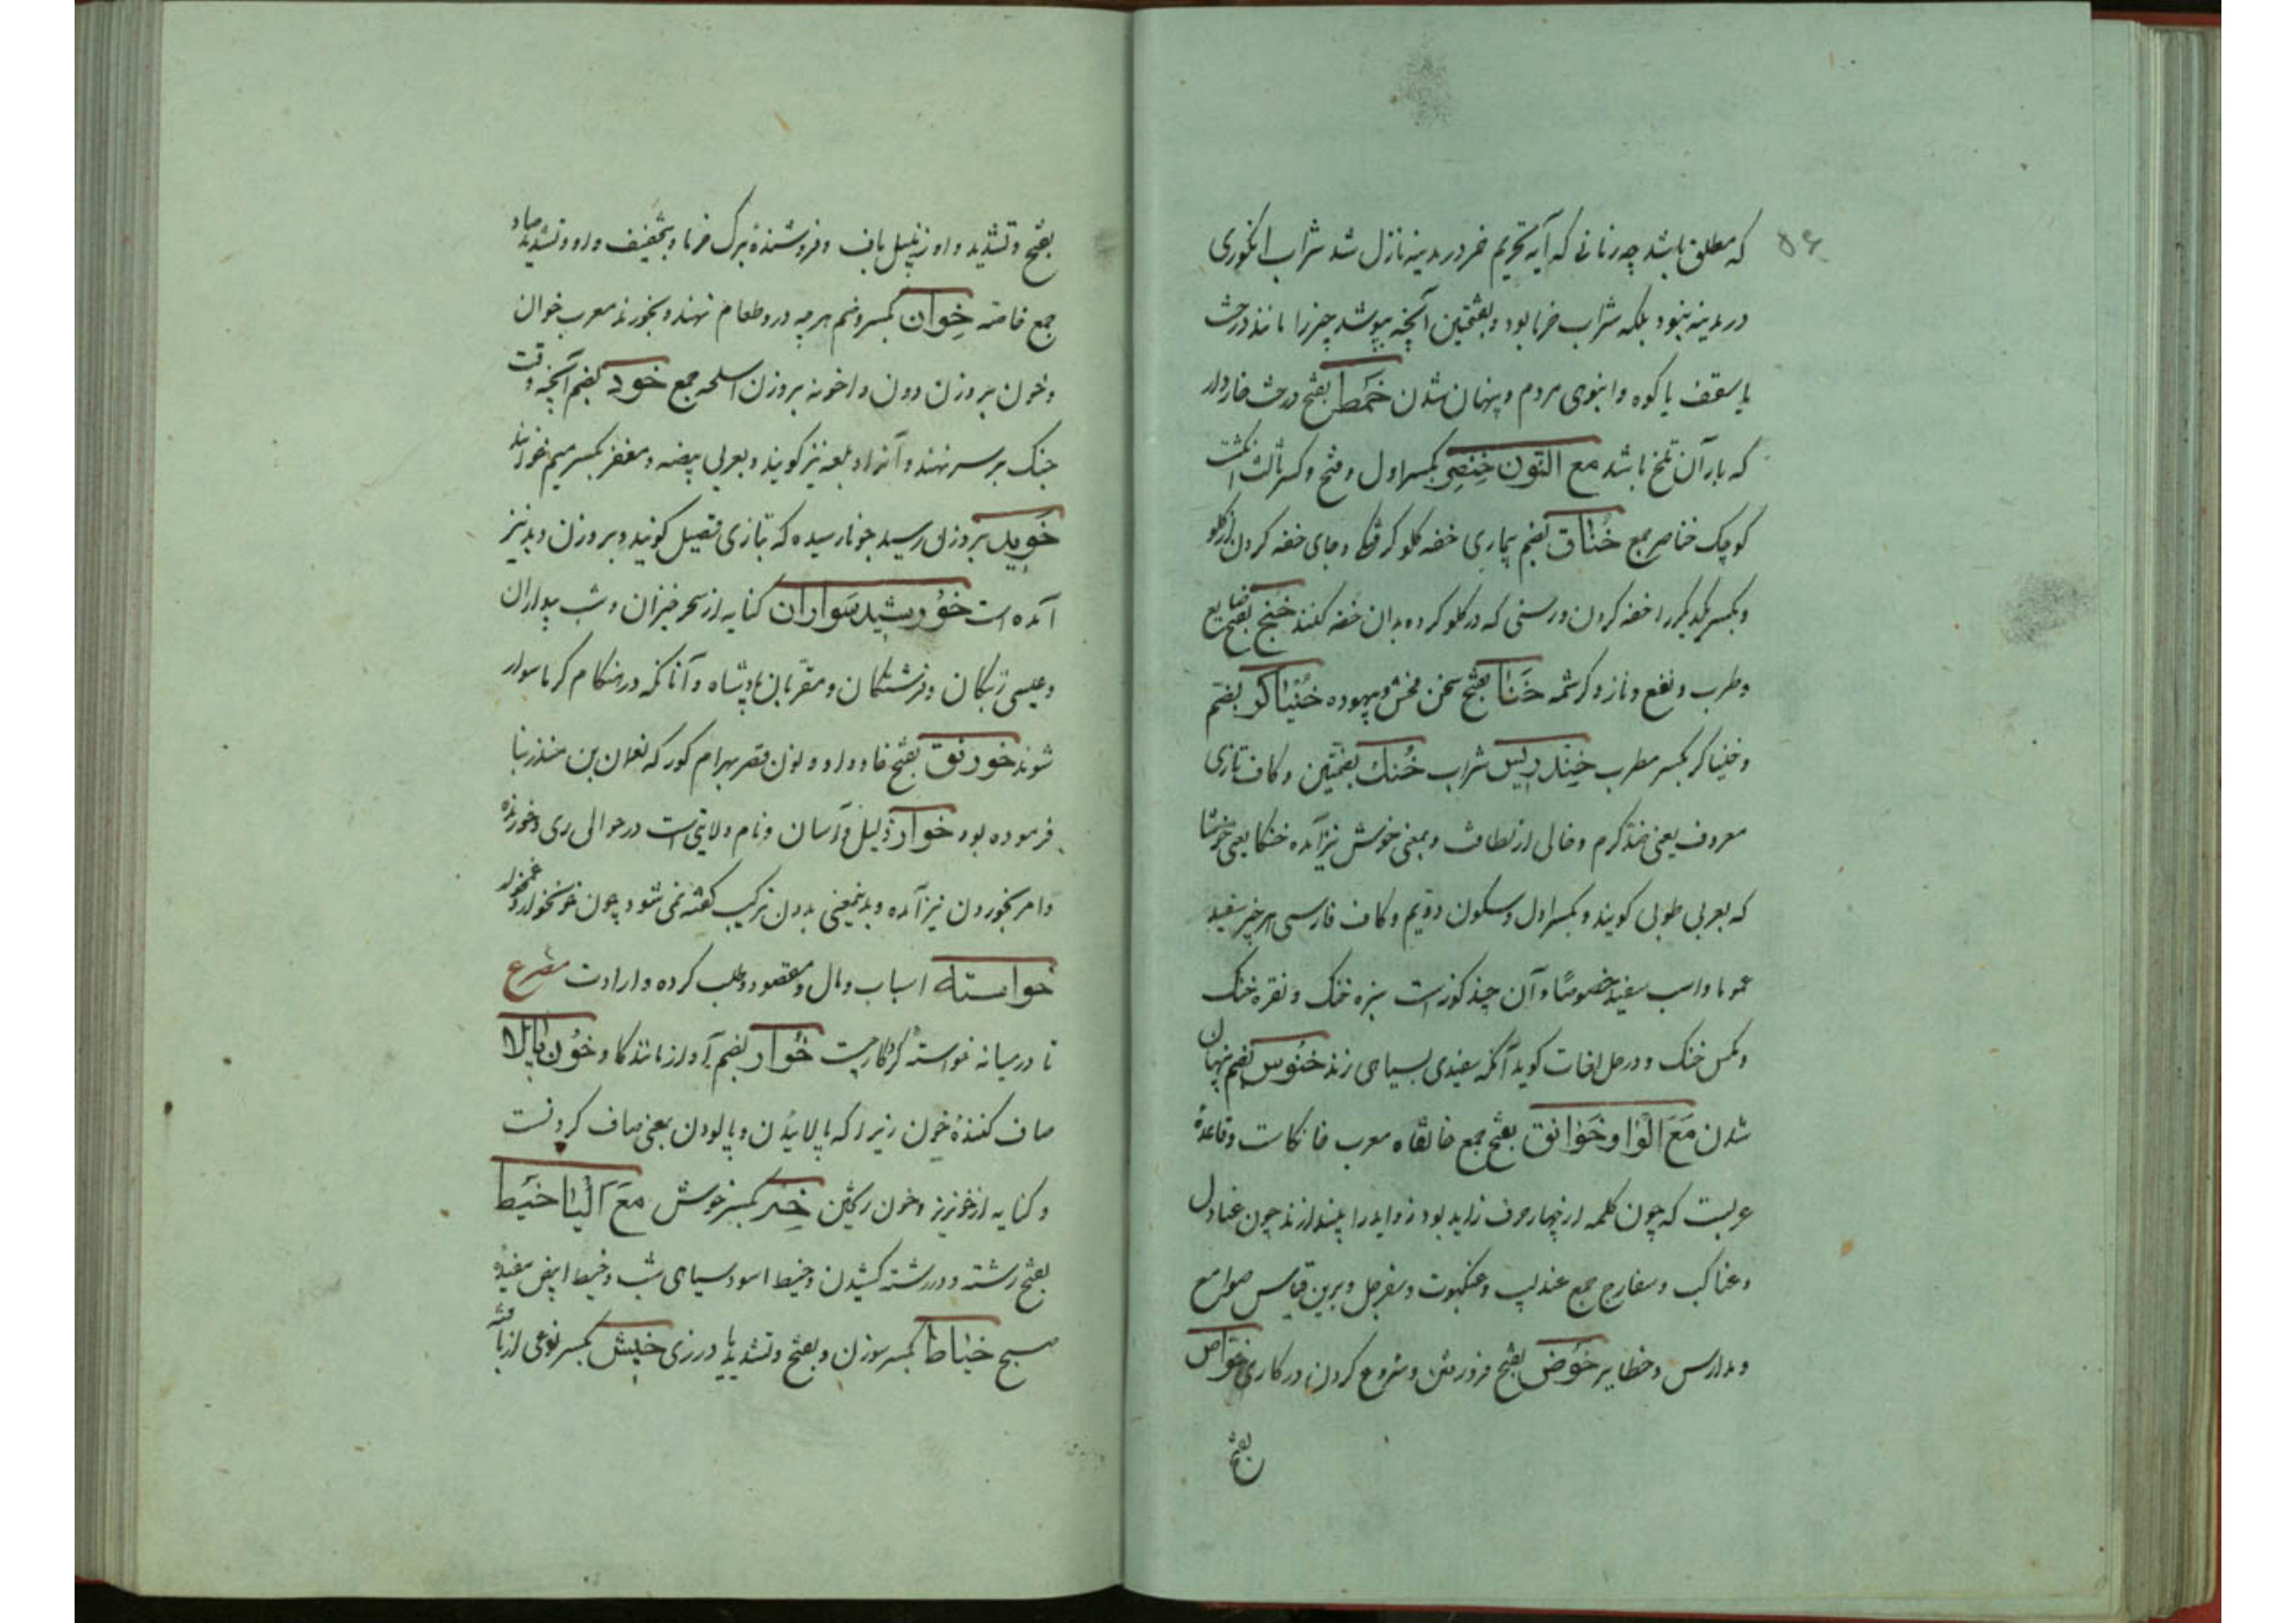 ۵۶
که مطلق باشد چه زمانی که آیه تحریم خمر در مدینه نازل شد شراب انکوری
در مدینه نبود بلکه شراب خرما بود و بفتحتین آنچه بپوشد چیزرا مانند درخت
یا سقف یا کوه و انبوی مردم و پنهان شدن خمط بفتح درخت خاردار
که بار آن تلخ باشد مع النون خنصر بکسر اول و فتح و کسر ثالث انکشت
کوچک خناصر جمع خناق بضم بیماری خفه کلو کرفتکی و جای خفه کردن از کلو
و بکسر یکدیکر را خفه کردن و رسنی که در کلو کرده بدان خفه کنند خنج بفتح
وطرب و نفع و ناز و کرشمه خنا بفتح سخن فحش و بیهوده خنیاکر بضم
و خنیاکر بکسر مطرب خندریس شراب خنک بضمتین و کاف تازی
معروف یعنی ضد کرم و خالی از لطافت و بمعنی خوش نیز آمده خنکا یعنی خوشا
که بعربی طوبی کویند و بکسر اول و سکون دویم و کاف فارسی هر چیز سفید
عموما و اسب سفید خصوصا و آن چند کونه است سبزه خنک و نقره خنک
و مکس خنک و در حل لغات کوید آنکه سفیدی بسیاهی زند خنوس بضم پنهان
شدن مع الواو خوانق بفتح جمع خانقاه معرب خانکاست و قاعدهٔ
عربست که چون کلمه از چهار حرف زاید بود زواید را بیندازند چون عنادل
و عناکب و سفارج جمع عندلیب و عنکبوت و سفرجل و برین قیاس صوامع
و مدارس و حظایر خوض بفتح فرورفتن و شروع کردن در کاری خواص
بفتح
بفتح و تشدید واو زنبیل باف و فروشندهٔ برک خرما و بتخفیف واو و تشدید صاد
جمع خاصه خوان بکسر و ضم هرچه درو طعام نهند و بخورند معرب خوان
و خون بر وزن دون و اخونه بر وزن اسلحه جمع خود بضم آنچه وقت
جنک بر سر نهند و آنرا دبلغه نیز کویند و بعربی بیضه و مغفر بکسر میم خوانند
خوید بر وزن رسید جو نارسیده که بتازی قصیل کویند و بر وزن دید نیز
آمده است خورشید سواران کنایه از سحرخیزان و شب بیداران
و عیسی زبکان و فرشتکان و مقربان پادشاه و آنانکه در هنکام کرما سوار
شوند خورنق بفتح خا و واو و نون قصر بهرام کور که نعمان بن منذر بنا
فرموده بود خوار ذلیل و آسان و نام ولایتی است در حوالی ری و خورنده
و امر بخوردن نیز آمده و بدینمعنی بدون ترکیب کفته نمی شود چون خونخوار و غمخوار
خواسته اسباب و مال و مقصود و طلب کرده و ارادت مصرع
تا در میانه خواسته کردکار چیست خوار بضم آواز مانند کاو خون پالا
صاف کنندهٔ خون زیرا که پالائیدن و پالودن بمعنی صاف کردنست
و کنایه از خونریز و خون ریختن خند بکسر خوش مع الیا خیط
بفتح رشته و در رشته کشیدن و خیط اسود سیاهی شب و خیط ابیض سفیدهٔ
صبح خیاط بکسر سوزن و بفتح و تشدید یا درزی خیش بکسر نوعی از بافته